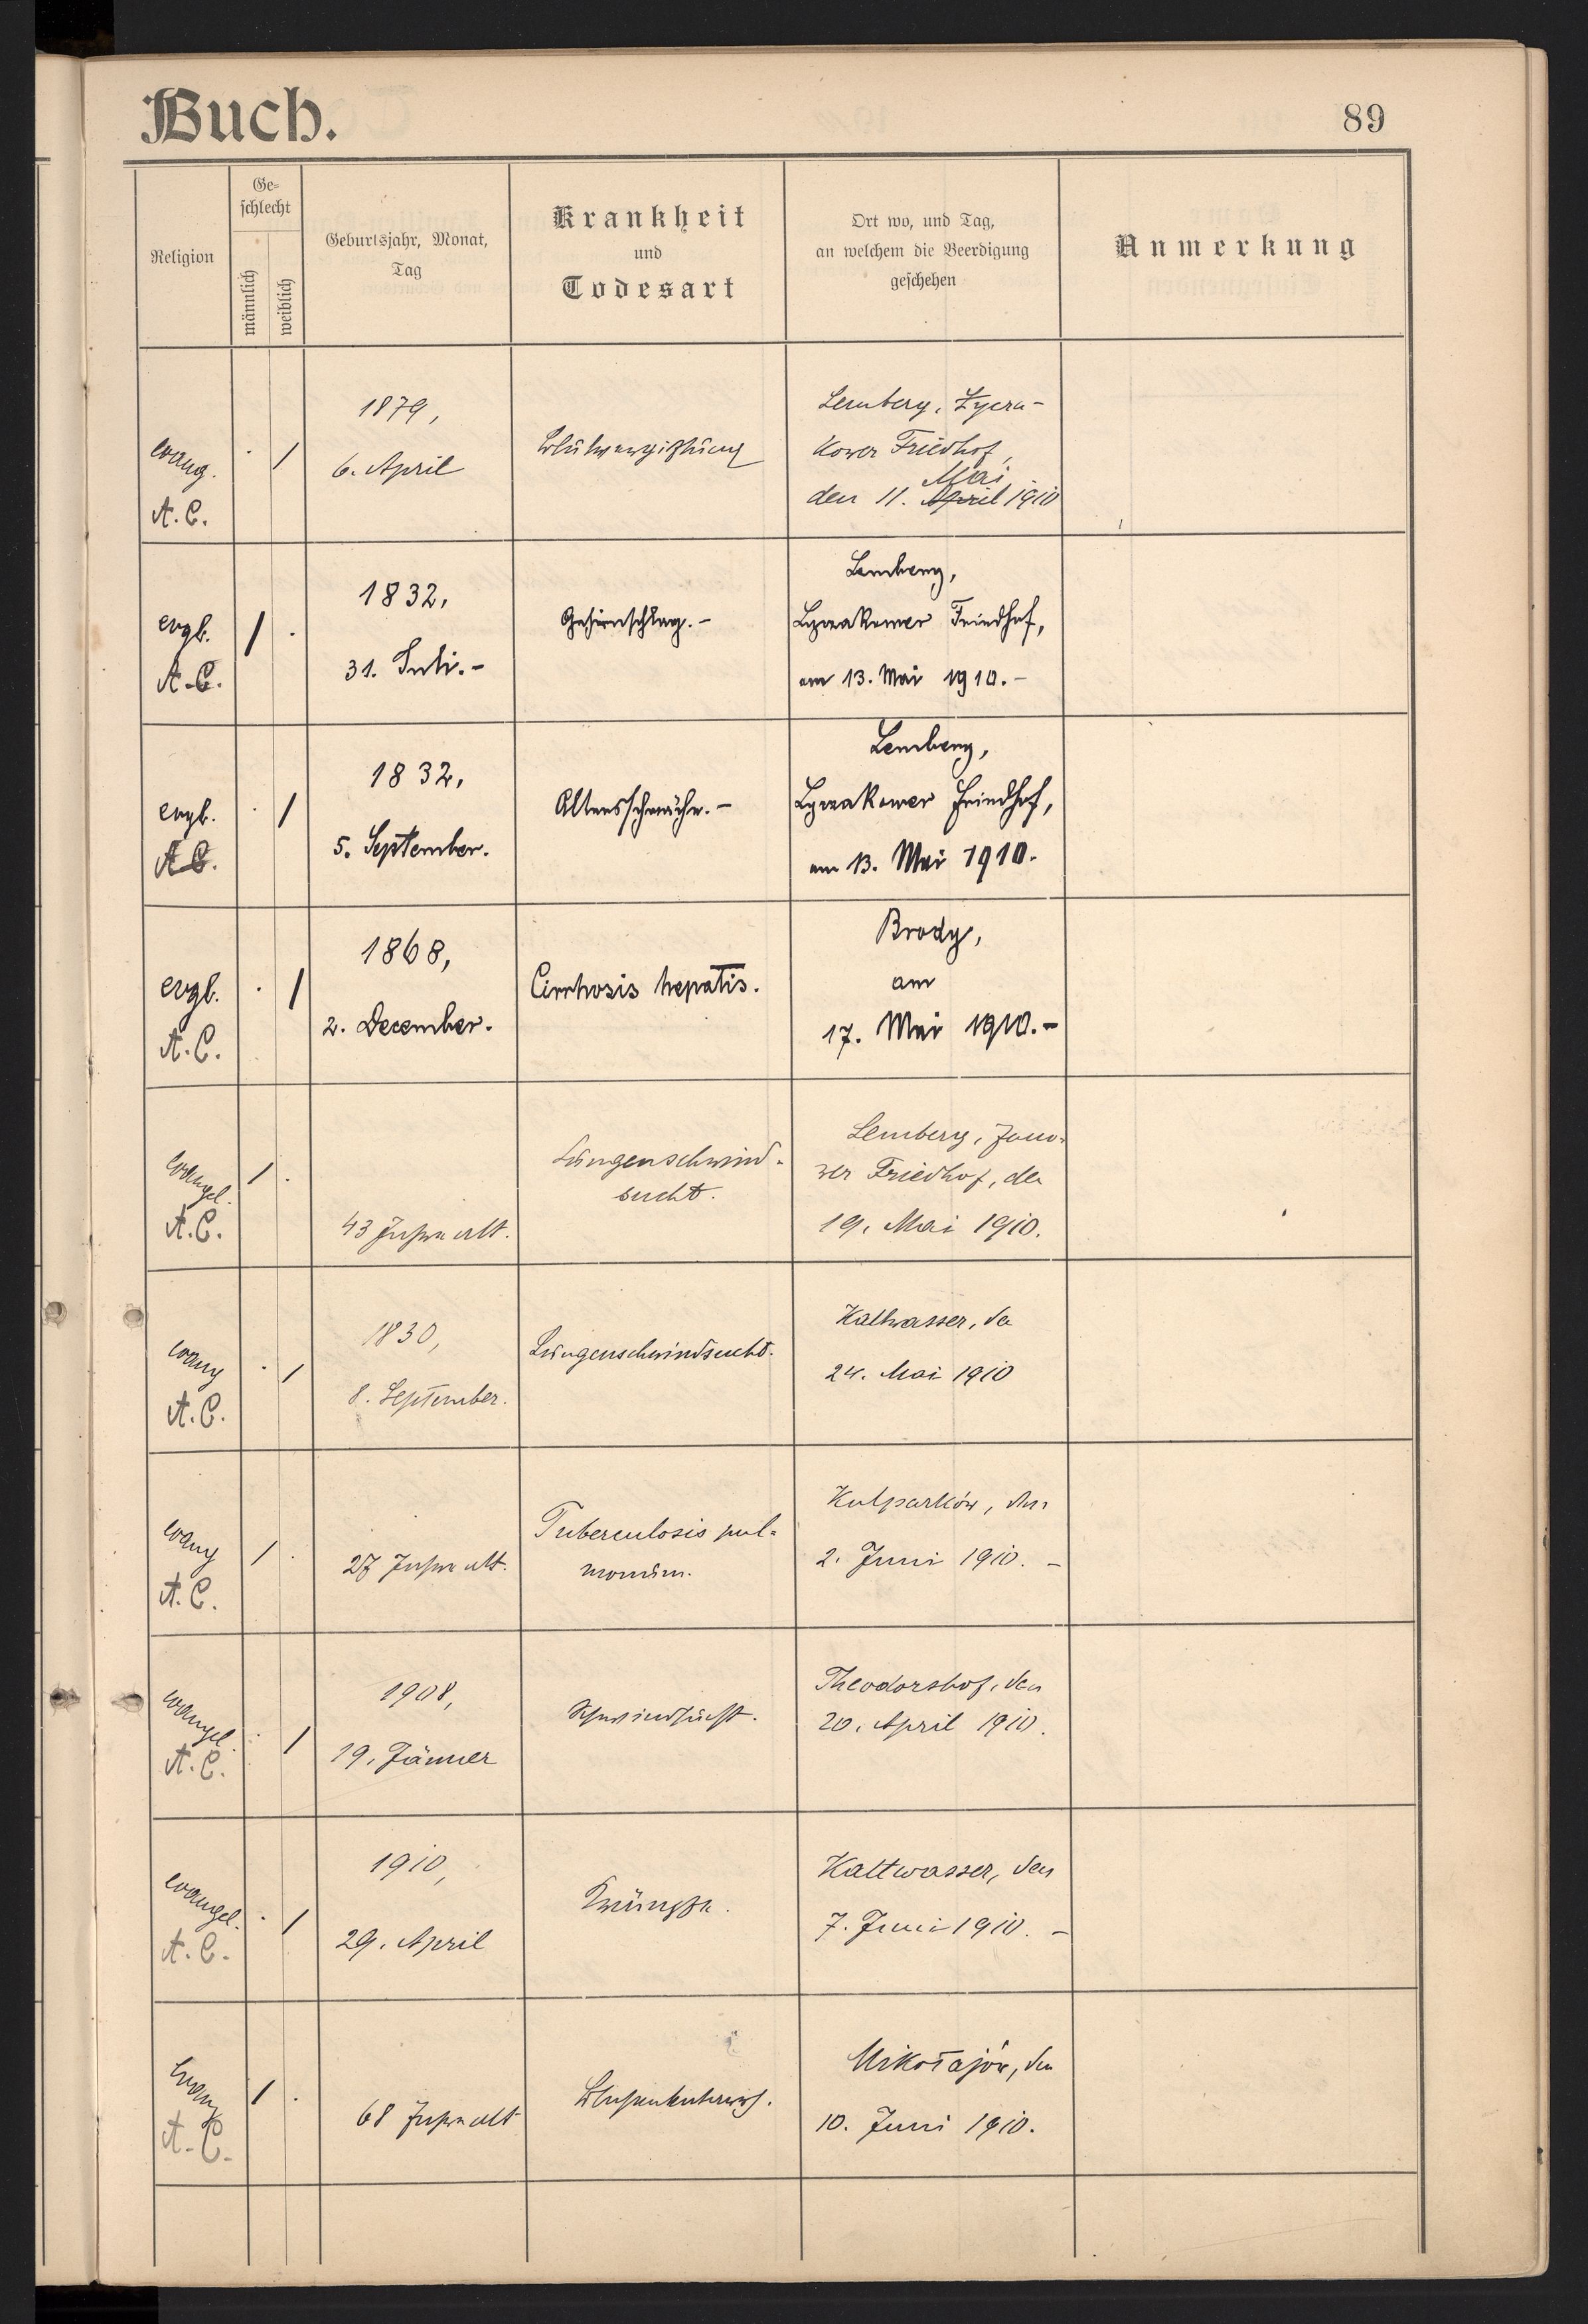 Buch.
89
Religion
Ge-
schlecht
männlich
weiblich
Geburtsjahr, Monat,
Tag
Krankheit
und
Todesart
Ort wo, und Tag,
an welchem die Beerdigung
geschehen
Anmerkung
evang.
A. C.
· /
1879,
6. April
Blutvergiftung
Lemberg, Lycza-
kower Friedhof,
Mai
den 11. April 1910
evgl.
A. C.
/ ·
1832,
31. Juli.-
Gehirnschlag.-
Lemberg,
Lyczakower Friedhof,
am 13. Mai 1910.-
evgl.
A. C.
· /
1832,
5. September.
Altersschwäche.-
Lemberg,
Lyczakower Friedhof,
am 13. Mai 1910.
evgl.
A. C.
· /
1868,
2. December.
Cirrhosis hepatis.
Brody,
am
17. Mai 1910.-
evangel.
A. C.
/ ·
43 Jahre alt.
Lungenschwind-
sucht.
Lemberg, Jano-
wer Friedhof, den
19. Mai 1910.
evang
A. C.
· /
1830,
8. September.
Lungenschwindsucht.
Kaltwasser, den
24. Mai 1910
evang
A. C.
/ ·
27 Jahre alt.
Tuberculosis pul-
monum.
Kulparków, den
2. Juni 1910. -
evangel.
A. C.
· /
1908,
19. Jänner
Schwindsucht.
Theodorshof, den
20. April 1910.
evangel.
A. C.
· /
1910,
29. April
Kaltwasser, den
7. Juni 1910. -
evang
A. C.
/ ·
68 Jahre alt
Mikołajów, den
10. Juni 1910.